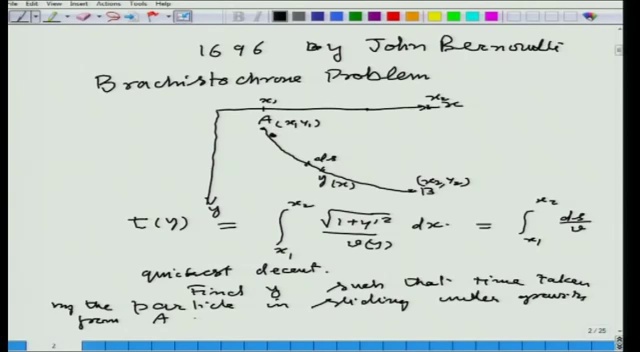 File Edit View Insert Actions Tools Help
1696 By John Bernoulli
Brachistochrone Problem
x₁ x₂ x
A(x₁,y₁)
ds
y(x)
(x₂,y₂)
B
y
t(y) = ∫_{x₁}^{x₂} √(1+y'²)/v(y) dx. = ∫_{x₁}^{x₂} ds/v
quickest decent.
Find y such that time taken
by the particle in sliding under gravity
from A
2 / 25
2